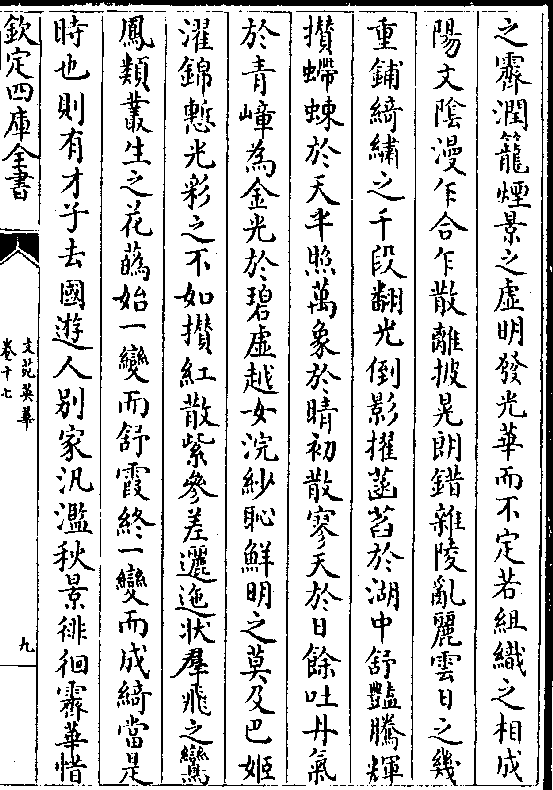 之霽潤籠煙景之虛明發光華而不定若組織之相成
陽文陰漫乍合乍散離披晃朗錯雜陵亂麗雲日之幾
重鋪綺繡之千段翻光倒影擢菡萏於湖中舒豔騰輝
攢螮蝀於天半照萬象於晴初散寥天於日餘吐丹氣
於青嶂為金光於碧虛越女浣紗恥鮮明之莫及巴姬
濯錦慙光彩之不如攢紅散紫參差邐迤狀羣飛之鸞
鳳類叢生之花蘤始一變而舒霞終一變而成綺當是
時也則有才子去國遊人別家汎濫秋景徘徊霽華惜
欽定四庫全書
文苑英華
卷十七
九